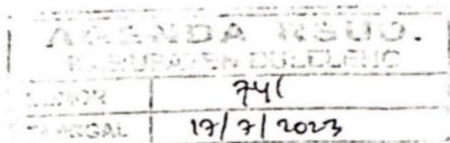 AGENDA RSUD.
KABUPATEN BULELENG
NOMOR 741
TANGGAL 17/7/2023